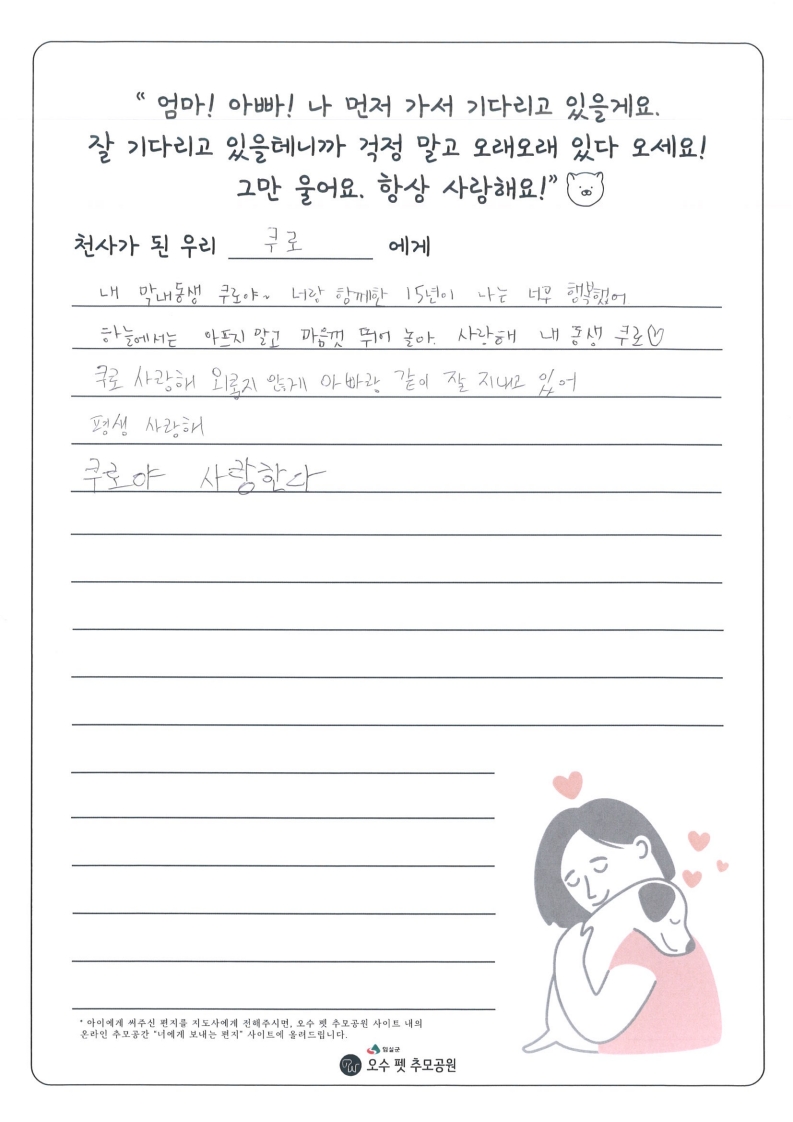 “ 엄마! 아빠! 나 먼저 가서 기다리고 있을게요.
잘 기다리고 있을테니까 걱정 말고 오래오래 있다 오세요!
그만 울어요. 항상 사랑해요!”
천사가 된 우리 쿠로 에게
내 막내동생 쿠로야~ 너랑 함께한 15년이 나는 너무 행복했어
하늘에서는 아프지 말고 마음껏 뛰어 놀아. 사랑해 내 동생 쿠로♡
쿠로 사랑해 외롭지 않게 아빠랑 같이 잘 지내고 있어
평생 사랑해
쿠로야 사랑한다
* 아이에게 써주신 편지를 지도사에게 전해주시면, 오수 펫 추모공원 사이트 내의
온라인 추모공간 "너에게 보내는 편지" 사이트에 올려드립니다.
임실군
오수 펫 추모공원